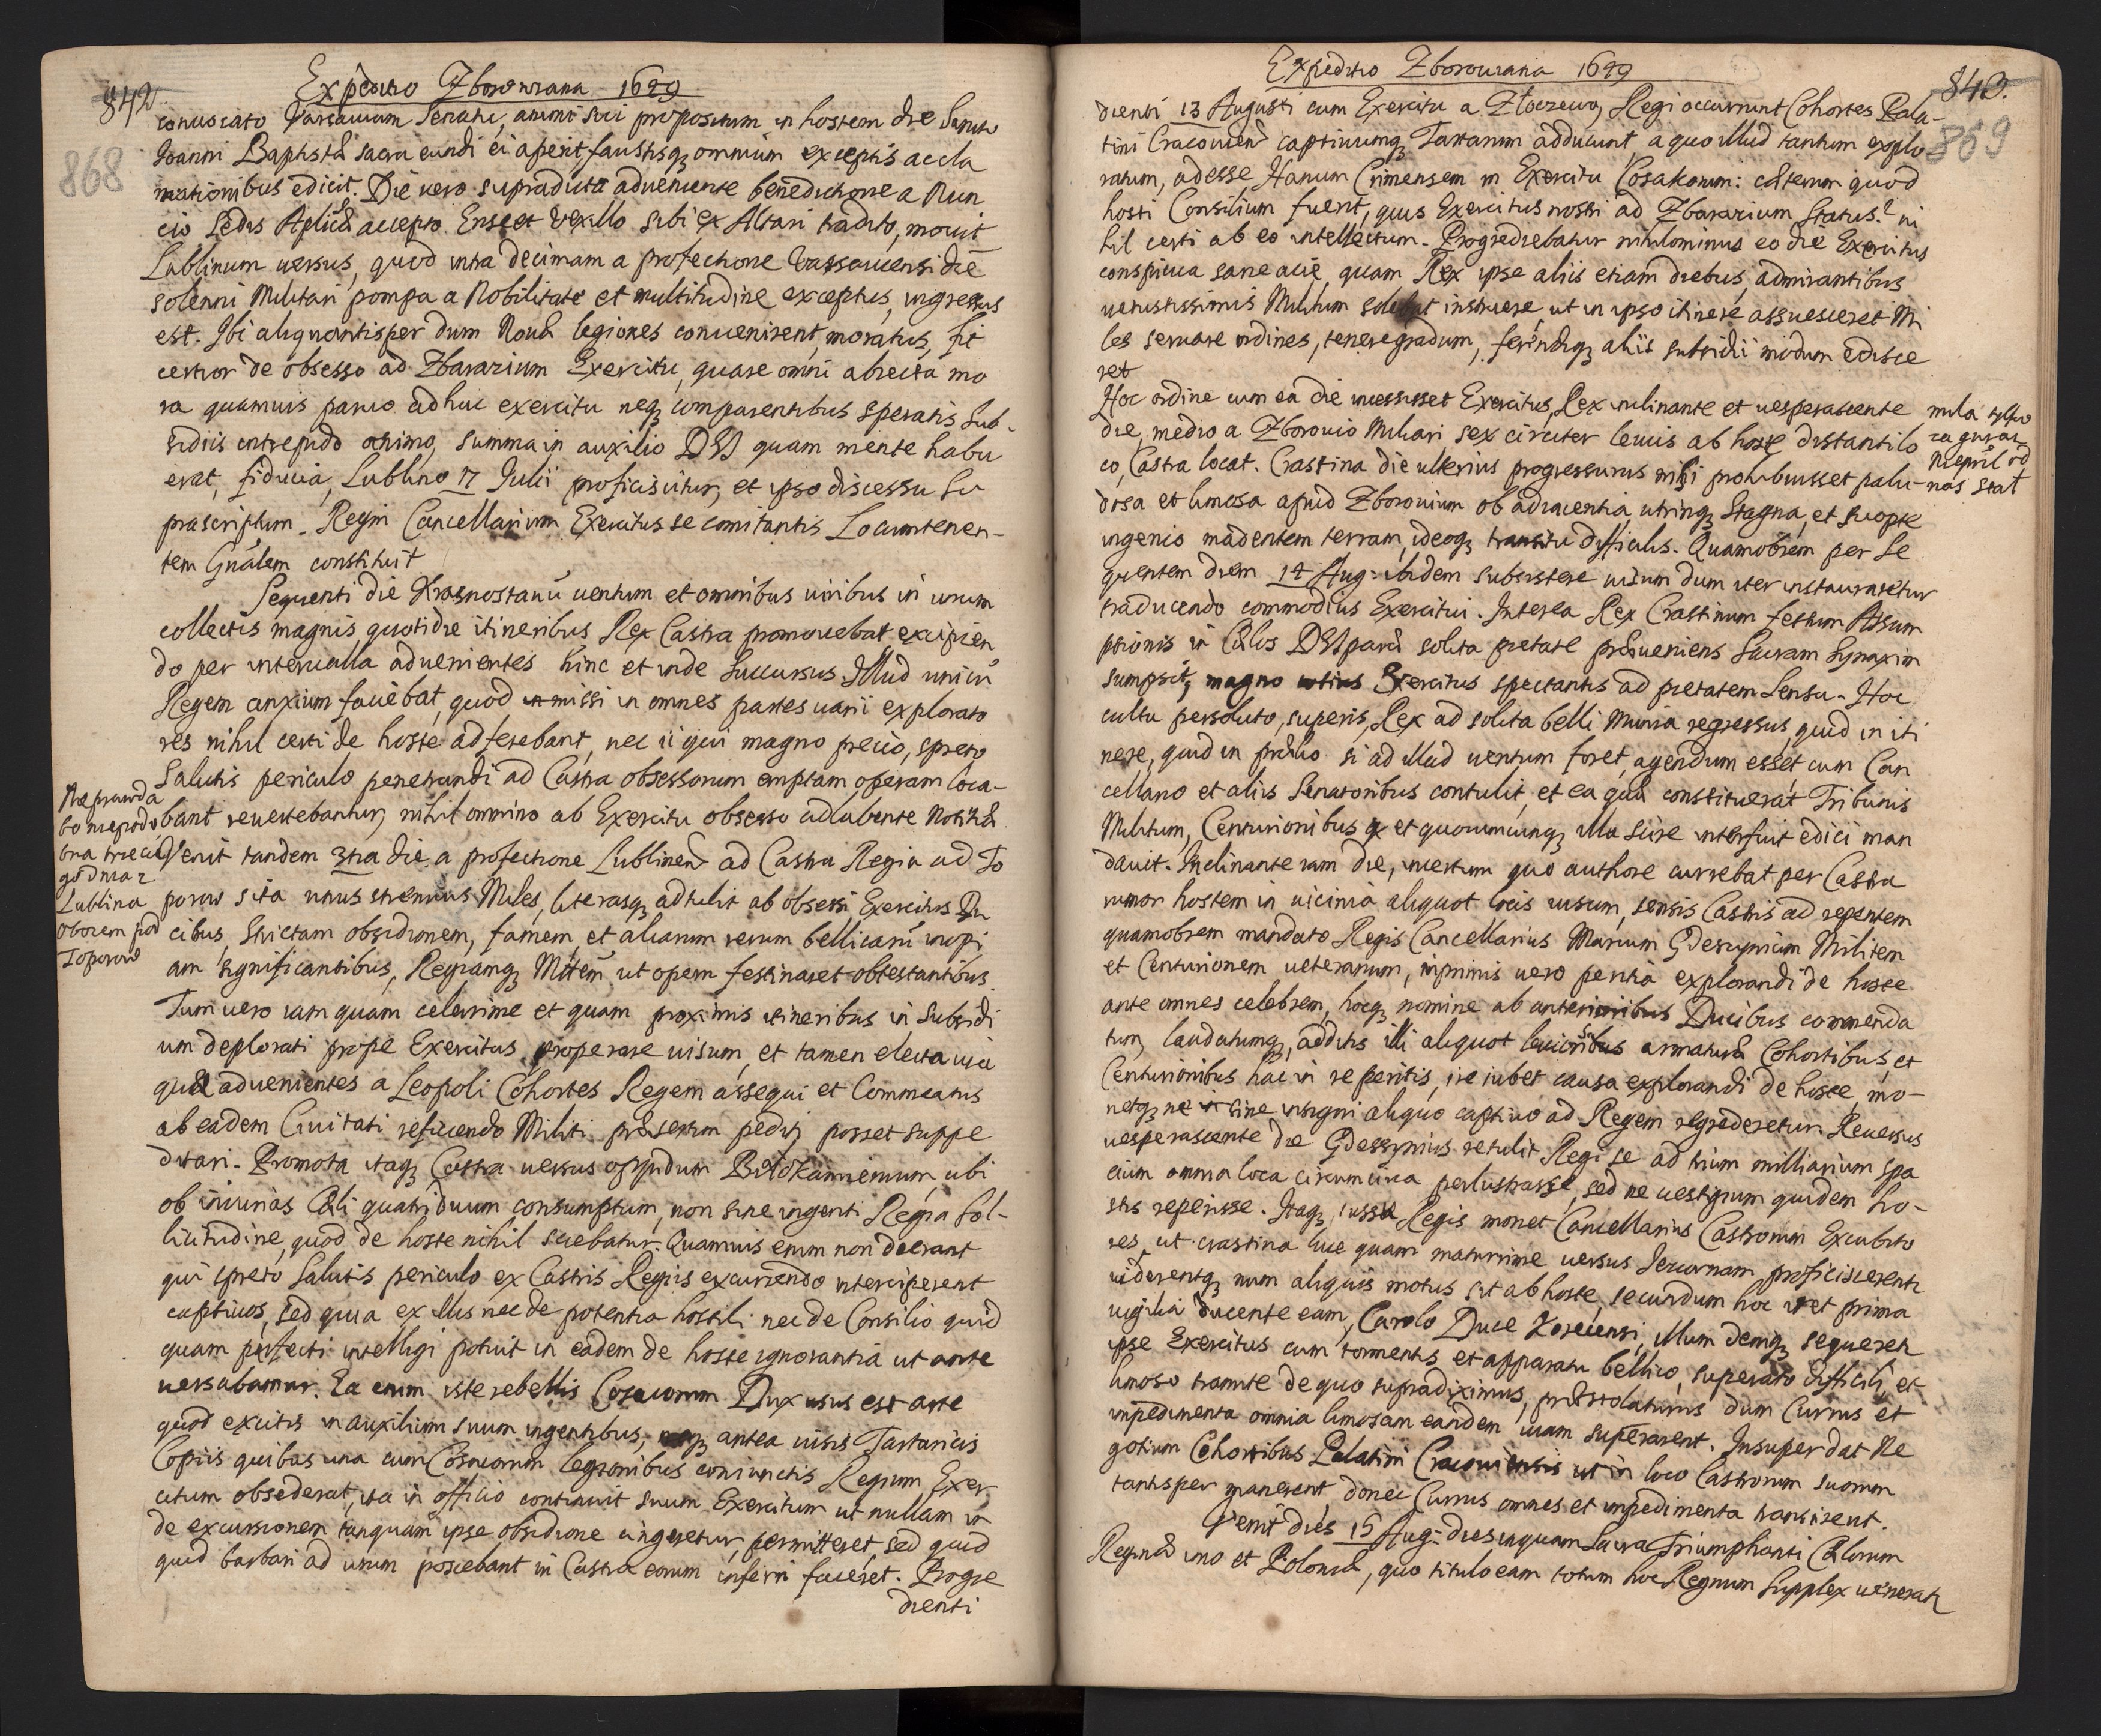 Expeditio Zborowiana 1649
842
868
conuocato Varsauiam Senatu, animi sui propositum in hostem die Sancto
Joanni Baptistæ sacra eundi ei aperit faustisq; omnium exceptis accla
mationibus edicit. Die uero supradicta adueniente benedictione a Nun
cio Sedis Aplicæ accepto Ense et Vexillo sibi ex Altari tradito, mouit
Lublinum uersus, quod intra decimam a profectione Varsauiensi die
solenni Militari pompa a Nobilitate et multitudine exceptus, ingressus
est. Ibi aliquantisper dum Nouæ legiones conuenirent, moratus, fit
certior de obsesso ad Zbarazium Exercitu, quare omni abiecta mo
ra quamuis paruo adhuc exercitu neq; comparentibus speratis Sub-
sidiis intrepido animo, summa in auxilio DEI quam mente habu
erat, fiducia, Lublino 17 Julii proficiscitur, et ipso discessu Su
prascriptum Regni Cancellarium Exercitus se comitantis Locumtenen-
tem Gnãlem constituit
Sequenti die Krasnostauũ uentum et omnibus uiribus in unum
collectis magnis quotidie itineribus Rex Castra promouebat excipien
do per interualla aduenientes hinc et inde Succursus. Illud unicũ
Regem anxium faciebat, quod missi in omnes partes uarii explorato
res nihil certi de hoste adferebant, nec ii qui magno precio, spreto
Salutis periculo penetrandi ad Castra obsessorum emptam operam loca-
bant reuertebantur, nihil omnino ab Exercitu obsesso adlubente Notitiæ
Venit tandem 3tia die a profectione Lublinen ad Castra Regia ad To
porow sita unus strenuus Miles, literasq; adtulit ab obsessi Exercitus Du
cibus, Strictam obsidionem, famem, et aliarum rerum bellicarũ inopi
am significantibus, Regiamq; Mttem ut opem festinaret obtestantibus.
Tum uero iam quam celerrime et quam proximis itineribus in Subsidi
um deplorati prope Exercitus properare uisum, et tamen electa uia
qua aduenientes a Leopoli Cohortes Regem assequi et Commeatus
ab eadem Ciuitati reficiendo Militi præsertim pediti posset suppe
ditari. Promota itaq; Castra uersus oppidum Białokamienum, ubi
ob iniurias Cæli quatriduum consumptum, non sine ingenti Regia Sol-
licitudine, quod de hoste nihil sciebatur. Quamuis enim non deerant
qui spreto Salutis periculo ex Castris Regiis excurrendo interciperent
captiuos, sed quia ex illis nec de potentia hostili nec de Consilio quid
quam perfecti intelligi potuit in eadem de hoste ignorantia ut ante
uersabamur. Ea enim iste rebellis Cosacorum Dux usus est arte
quod excitis in auxilium suum ingentibus, neq; antea uisis Tartaricis
Copiis quibus una cum Cosacorum legionibus coniunctis Regium Exer
citum obsederat, ita in officio continuit suum Exercitum ut nullam in
de excursionem tanquam ipse obsidione cingeretur, permitteret, sed quid
quid barbari ad usum poscebant in Castra eorum inferri faceret. Progre
dienti
Nieprawda
bo niepodo
bna trzeciego
dnia z
Lublina
obozem pod
Toporow
Expeditio Zborowiana 1649
843.
869
dienti 13 Augusti cum Exercitu a Złoczewo, Regi occurrunt Cohortes Pala-
tini Cracouien captiuumq; Tartarum adducunt a quo illud tantum explo
ratum, adesse Hanum Crimensem in Exercitu Cosakorum: cæterum quod
hosti Consilium fuerit, quis Exercitus nostri ad Zbarazium Status? ni
hil certi ab eo intellectum. Progrediebatur nihilominus eo die Exercitus
conspicua sane acie, quam Rex ipse aliis etiam diebus, admirantibus
uetustissimis Militum solebat instruere, ut in ipso itinere assuesceret Mi
les seruare ordines, tenere gradum, ferendiq; aliis subsidii modum edisce
ret
Hoc ordine cum ea die incessisset Exercitus, Rex inclinante et uesperascente
die, medio a Zborouio Miliari sex circiter leucis ab hoste distanti lo
co, Castra locat. Crastina die ulterius progressurus nisi prohibuisset palu-
dosa et limosa apud Zborouium ob adiacentia utrinq; Stagna, et suopte
ingenio madentem terram, ideoq; transitu difficilis. Quamobrem per Se
quentem diem 14 Aug: ibidem subsistere uisum dum iter instauraretur
traducendo commodius Exercitui. Interea Rex Crastinum festum Assum
ptionis in Cælos DEIparæ solita pietate præueniens Sacram Synaxim
sumpsit, magno totius Exercitus spectantis ad pietatem Sensu. Hoc
cultu persoluto, superis, Rex ad solita belli Munia regressus, quid in iti
nere, quid in prælio si ad illud uentum foret, agendum esset, cum Can
cellario et aliis Senatoribus contulit, et ea quæ constituerat Tribunis
Militum, Centurionibus et quorumcunq; illa scire interfuit edici man
dauit. Inclinante iam die, incertum quo authore currebat per Castra
rumor hostem in uicinia aliquot locis uisum, sensis Castris ad repentem
quamobrem mandato Regis Cancellarius Marium Gdeszynium Militem
et Centurionem ueteranum, inprimis uero peritia explorandi de hoste
ante omnes celebrem, hocq; nomine ab anterioribus Ducibus commenda
tum, laudatumq;, additis illi aliquot leuioris armaturæ Cohortibus, et
Centurionibus hac in re peritis, ire iubet causa explorandi de hoste, mo-
netq; ne sine insigni aliquo captiuo ad Regem regrederetur. Reuersus
uesperascente die Gdessynius retulit Regi se ad trium milliarium Spa
cium omnia loca circumcirca perlustrasse, sed ne uestigium quidem ho-
stis reperisse. Itaq; iussu Regis monet Cancellarius Castrorum Excubito
res, ut crastina luce quam maturrime uersus Jeziernam proficiscerentr
uiderentq; num aliquis motus sit ab hoste, secundum hoc iret prima
uigilia ducente eam, Carolo Duce Koreciensi, illum demq; sequeretr
ipse Exercitus cum tormentis et apparatu bellico, superato difficili, et
limoso tramite de quo supradiximus, præstolaturus dum Currus et
impedimenta omnia limosam eandem uiam superarent. Insuper dat Ne
gotium Cohortibus Palatini Cracouiensis ut in loco Castrorum suorum
tantisper manerent, donec Currus omnes et impedimenta transirent.
Venit dies 15 Aug: dies inquam Sacra Triumphanti Cælorum
Reginæ imo et Poloniæ, quo titulo eam totum hoc Regnum Supplex ueneratr
mila tylko